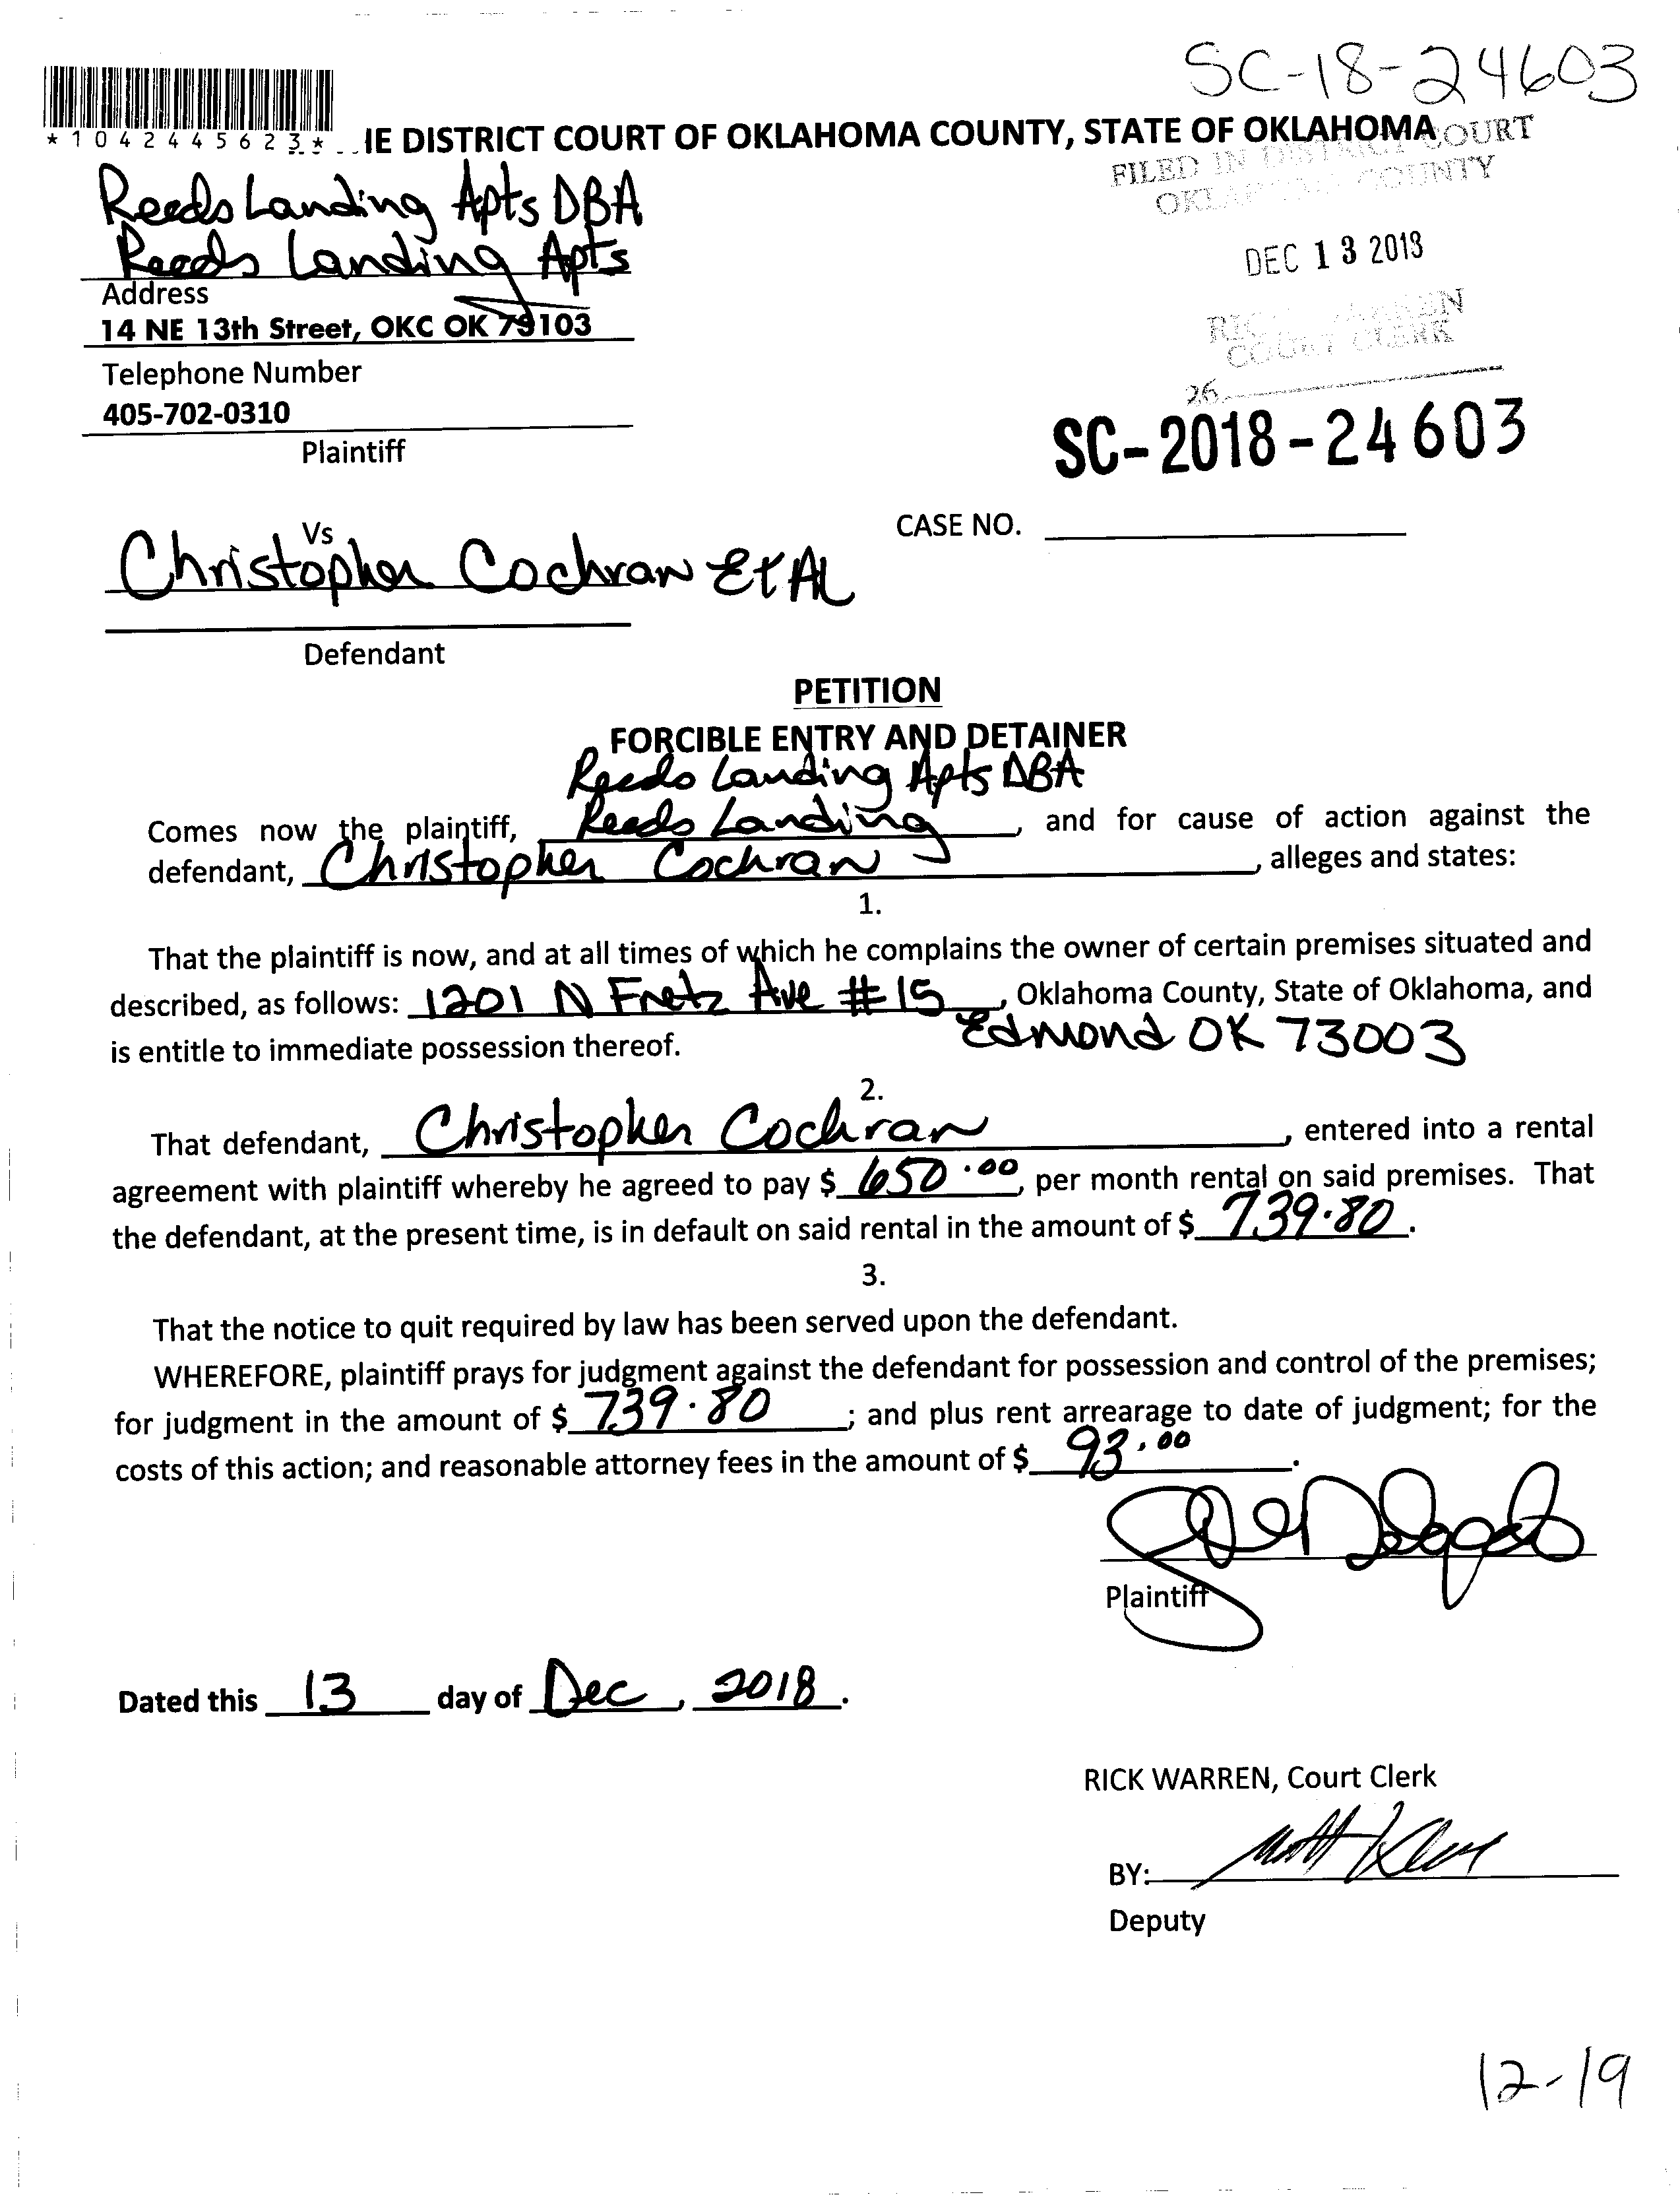 SC-18-24603
*1042445623*
IE DISTRICT COURT OF OKLAHOMA COUNTY, STATE OF OKLAHOMA
FILED IN DISTRICT COURT
OKLAHOMA COUNTY
Reeds Landing Apts DBA
Reeds Landing Apts
DEC 13 2018
Address
14 NE 13th Street, OKC OK 73103
RICK WARREN
COURT CLERK
Telephone Number
26
405-702-0310
Plaintiff
SC-2018-24603
Vs
CASE NO.
Christopher Cochran Et AL
Defendant
PETITION
FORCIBLE ENTRY AND DETAINER
Reeds Landing Apts DBA
Comes now the plaintiff, Reeds Landing, and for cause of action against the
defendant, Christopher Cochran, alleges and states:
1.
That the plaintiff is now, and at all times of which he complains the owner of certain premises situated and
described, as follows: 1201 N Fretz Ave #15, Oklahoma County, State of Oklahoma, and
Edmond OK 73003
is entitle to immediate possession thereof.
2.
That defendant, Christopher Cochran, entered into a rental
agreement with plaintiff whereby he agreed to pay $ 650.00, per month rental on said premises. That
the defendant, at the present time, is in default on said rental in the amount of $ 739.80.
3.
That the notice to quit required by law has been served upon the defendant.
WHEREFORE, plaintiff prays for judgment against the defendant for possession and control of the premises;
for judgment in the amount of $ 739.80; and plus rent arrearage to date of judgment; for the
costs of this action; and reasonable attorney fees in the amount of $ 93.00.
Plaintiff
Dated this 13 day of Dec, 2018.
RICK WARREN, Court Clerk
BY:
Deputy
12-19